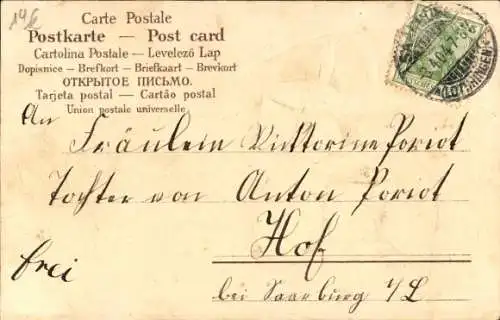 14€
Carte Postale
Postkarte — Post card
Cartolina Postale — Levelező Lap
Dopisnice — Brefkort — Briefkaart — Brevkort
ОТКРЫТОЕ ПИСЬМО.
Tarjeta postal — Cartão postal
Union postale universelle.
An
Fräulein Vicktorine Poriot
Tochter von Anton Poriot
Hof
frei
bei Saarburg i/L